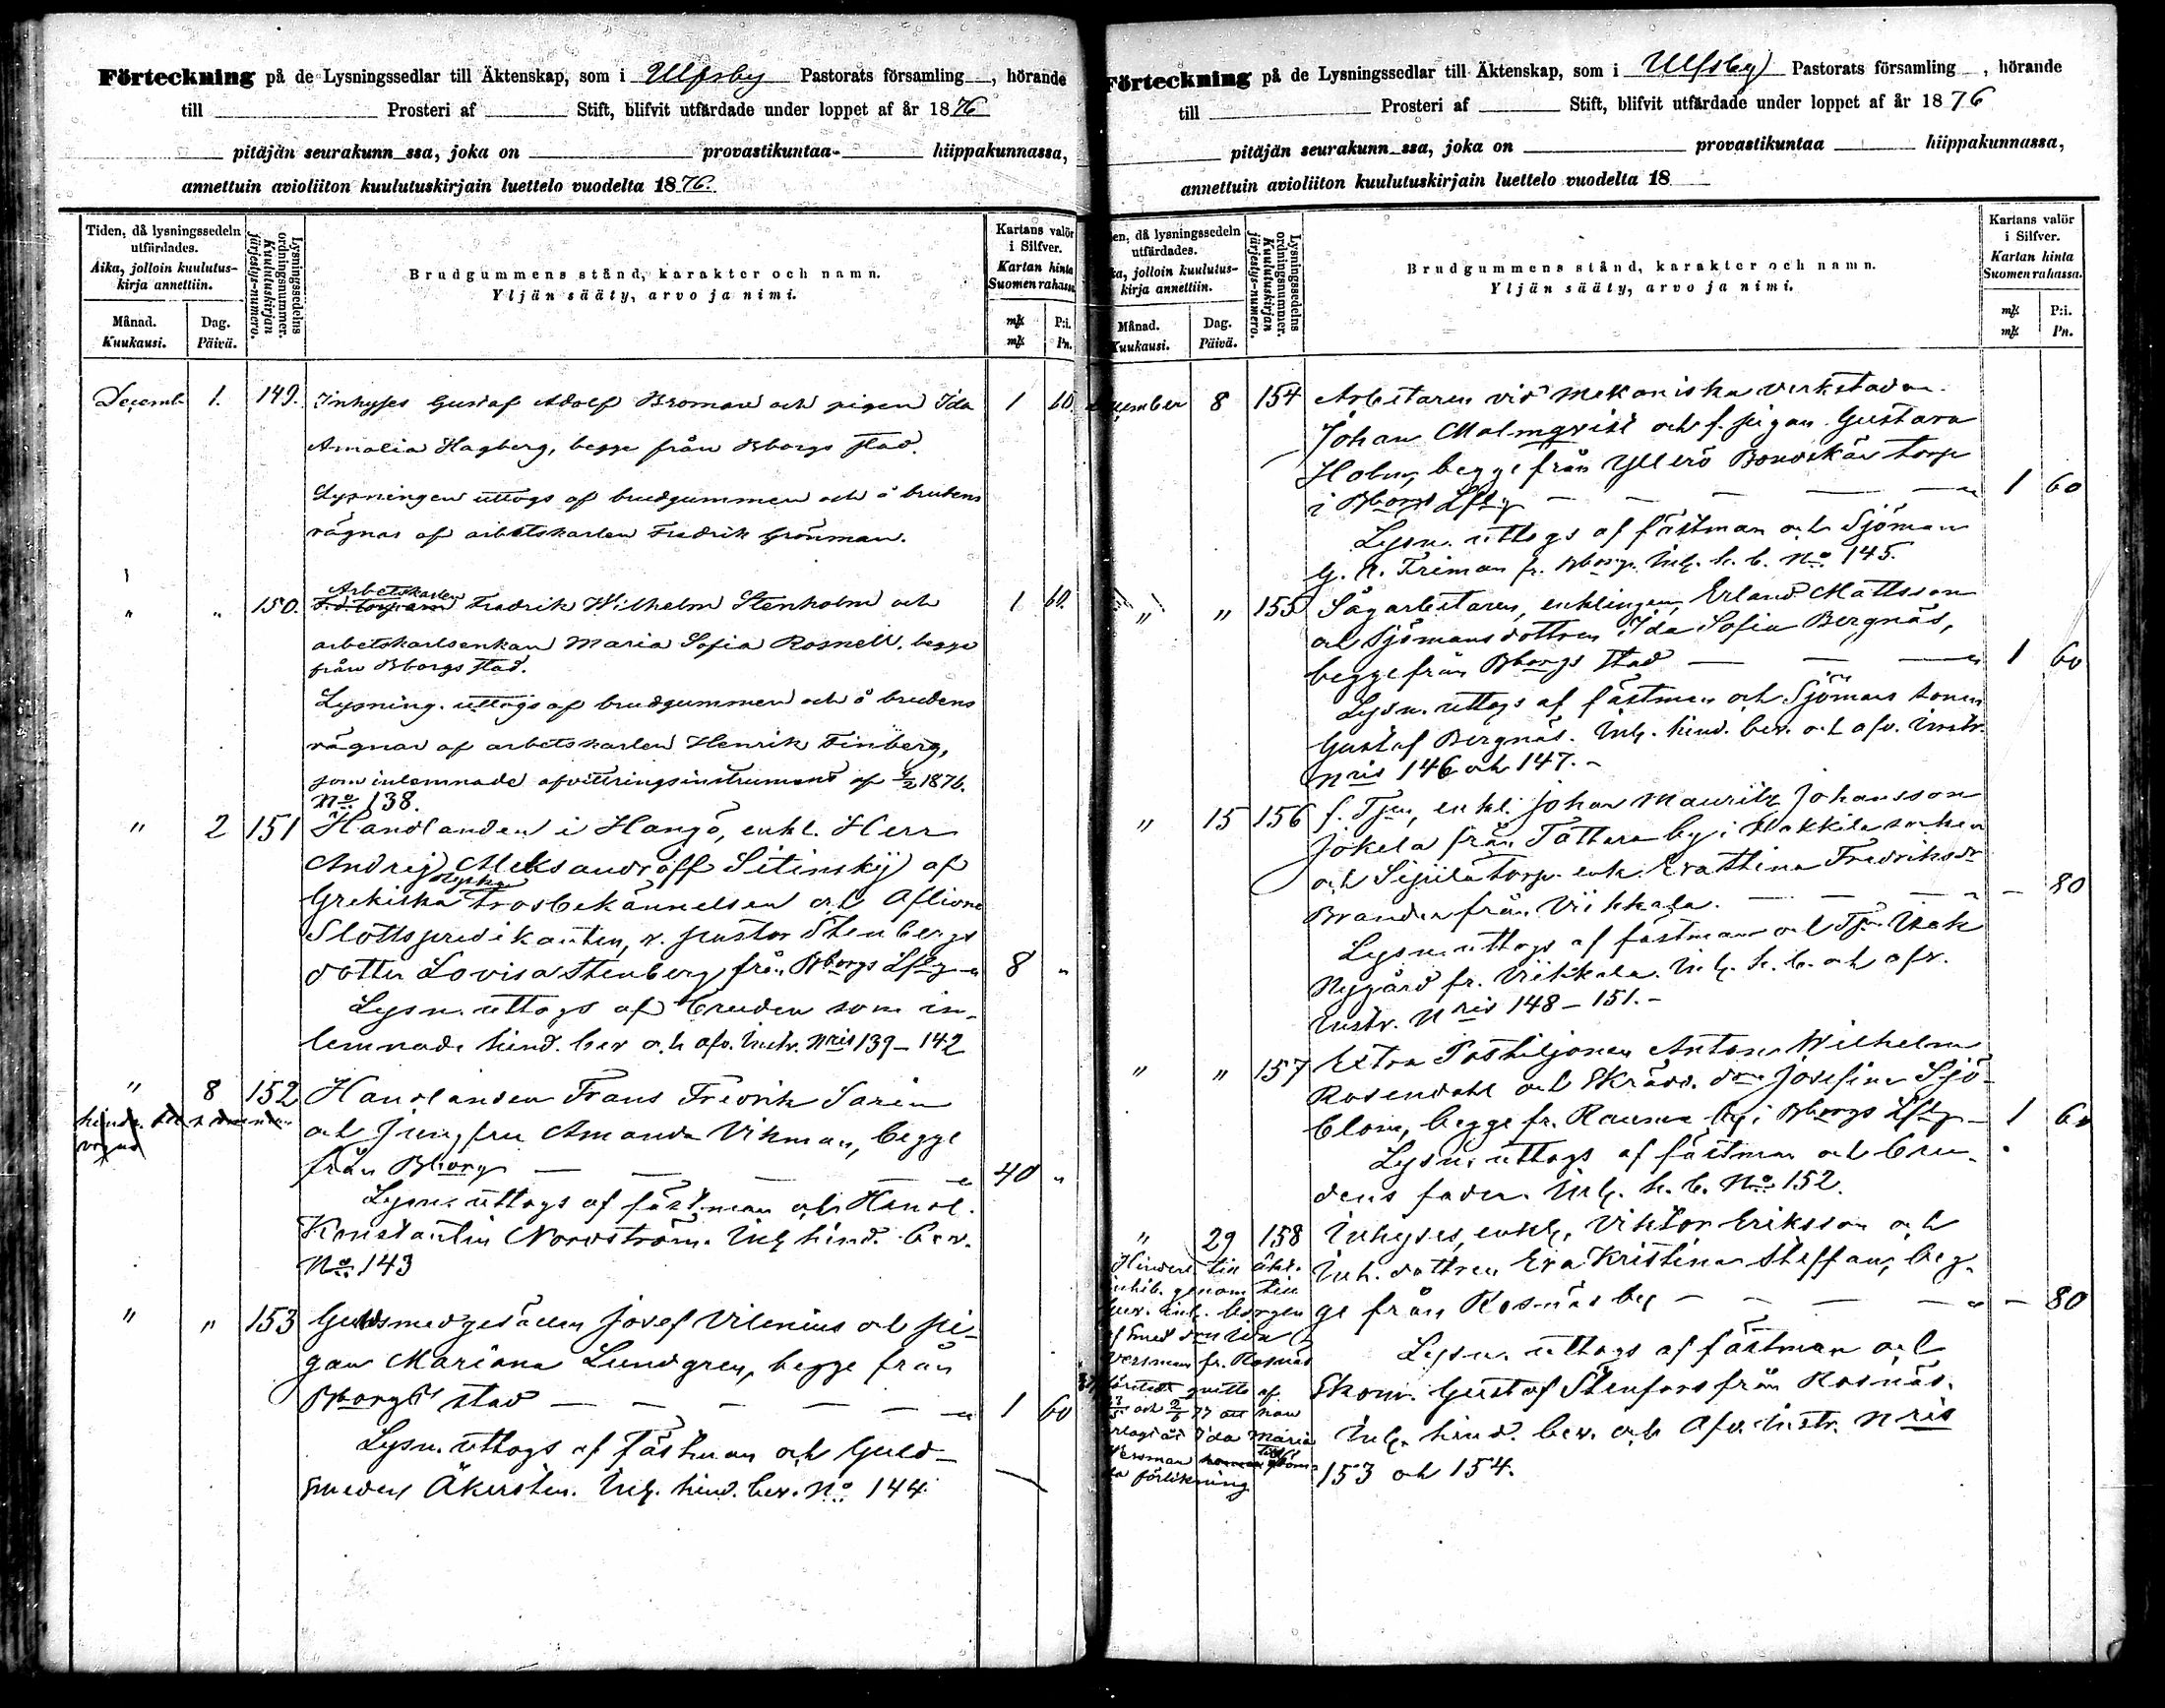 Förteckning på de Lysningssedlar till Äktenskap, som i Ulfsby Pastorats församling, hörande
till Prosteri af Stift, blifvit utfärdade under loppet af år 1876
pitäjän seurakunn ssa, joka on provastikuntaa hiippakunnassa,
annettuin avioliiton kuulutuskirjain luettelo vuodelta 1876.
Tiden, då lysningssedeln utfärdades.
Aika, jolloin kuulutuskirja annettiin.
Månad. Kuukausi.
Dag. Päivä.
Lysningssedelns ordningsnummer.
Kuulutuskirjan järjestys-numero.
Brudgummens stånd, karakter och namn.
Yljän sääty, arvo ja nimi.
Kartans valör i Silfver.
Kartan hinta Suomen rahassa
mk P:i.
mk Pn.
Decemb. 1. 149. Inhyses Gustaf Adolf Broman och pigan Ida 1 60
Amalia Hagberg, begge från Bborgs stad.
Lysningen uttogs af brudgummen och å brudens
vägnar af arbetskarlen Fredrik Grönman.
Arbetskarlen
" " 150. Fredrik Wilhelm Stenholm och 1 60.
arbetskarlsenkan Maria Sofia Rosnell, begge
från Bborgs stad.
Lysning. uttogs af brudgummen och å brudens
vägnar af arbetskarlen Henrik Finberg,
som inlemnade afvittringsinstrument af 1876.
No 138.
" 2 151 Handlanden i Hangö, enkl. Herr
Andrej Aleksandroff Sitinskij af
Grekiska Ryska trosbekännelsen och Aflidne
Slottspredikanten, v. pastor Stenbergs
dotter Lovisa Stenberg från Bborgs Lfg 8 "
Lysn. uttogs af bruden som in-
lemnade hind. bev och afv. Instr. Nris 139-142
" 8 152 Handlanden Frans Fredrik Sarin
och Jungfru Amanda Vikman, begge
från Bborg 40 "
Lysn. uttogs af fästman och Handl.
Konstantin Nordström. Inl. hind. bev.
No 143
" " 153 Guldsmedgesällen Josef Vilenius och pi-
gan Mariana Lundgren, begge från
Bborgs stad 1 60
Lysn. uttogs af Fästman och Guld-
smeden Åkersten. Inl. hind. bev. No 144.
Förteckning på de Lysningssedlar till Äktenskap, som i Ulfsby Pastorats församling, hörande
till Prosteri af Stift, blifvit utfärdade under loppet af år 1876
pitäjän seurakunn ssa, joka on provastikuntaa hiippakunnassa,
annettuin avioliiton kuulutuskirjain luettelo vuodelta 18
en, då lysningssedeln utfärdades.
ka, jolloin kuulutuskirja annettiin.
Månad. Kuukausi.
Dag. Päivä.
Lysningssedelns ordningsnummer.
Kuulutuskirjan järjestys-numero.
Brudgummens stånd, karakter och namn.
Yljän sääty, arvo ja nimi.
Kartans valör i Silfver.
Kartan hinta Suomen rahassa.
mk P:i.
mk Pn.
cember 8 154 Arbetaren vid mekaniska verkstaden
Johan Malmqvist och f. pigan Gustava
Holm, begge från Yllerö Bondskär torp
i Bborgs Lfg 1 60
Lysn. uttogs af fästman och Sjöman
G. A. Friman fr. Bborg. Inl. h. b. No 145.
" " 155 Sågarbetaren, enklingen Erland Mattsson
och Sjömansdottren Ida Sofia Bergnäs,
begge från Bborgs stad 1 60
Lysn. uttogs af fästman och Sjömans sonen
Gustaf Bergnäs. Inl. hind. bev. och afv. Instr.
Nris 146 och 147.-
" 15 156 f. Tjen, enkl. Johan Mauritz Johansson
Jokela från Tattara by i Kakkila
och Sepilä torp. enk. Eva Stina Fredriksdr
Brander från Viikkala. - 80
Lysn. uttogs af fästman och Isak
Nygård fr. Viikkala. Inl. h. b. och afv.
Instr. Nris 148-151.-
" " 157 Extra Postiljonen Anton Wilhelm
Rosendahl och Skrädd. dren Josefina Sjö-
blom, begge fr. Rauma by i Bborgs Lfg 1 60
Lysn. uttogs af fästman och bru-
dens fader. Inl. h. b. No 152.
" 29 158 Inhyses, enkl. Viktor Eriksson och
Inh. dottren Eva Kristina Steffan, beg-
ge från Rosnäs by - 80
Lysn. uttogs af fästman och
Skom. Gustaf Stenfors från Rosnäs.
Inl. hind. bev. och Afv. Instr. Nris
153 och 154.
Hinder till äkt.
inhib. genom
borgen
Versman fr. Rosnäs
Ida Maria
Versman
förlikning